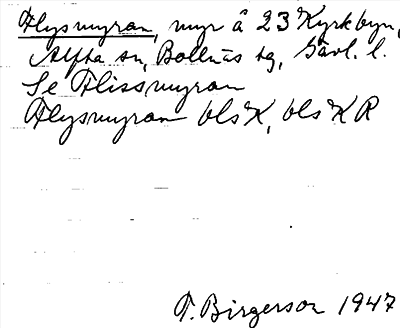 Flysmyran, myr å 23 Kyrkbyn,
Alfta sn, Bollnäs tg, Gävl. l.
Se Flissmyran
Flysmyran blsK, blsKR
T. Birgerson 1947